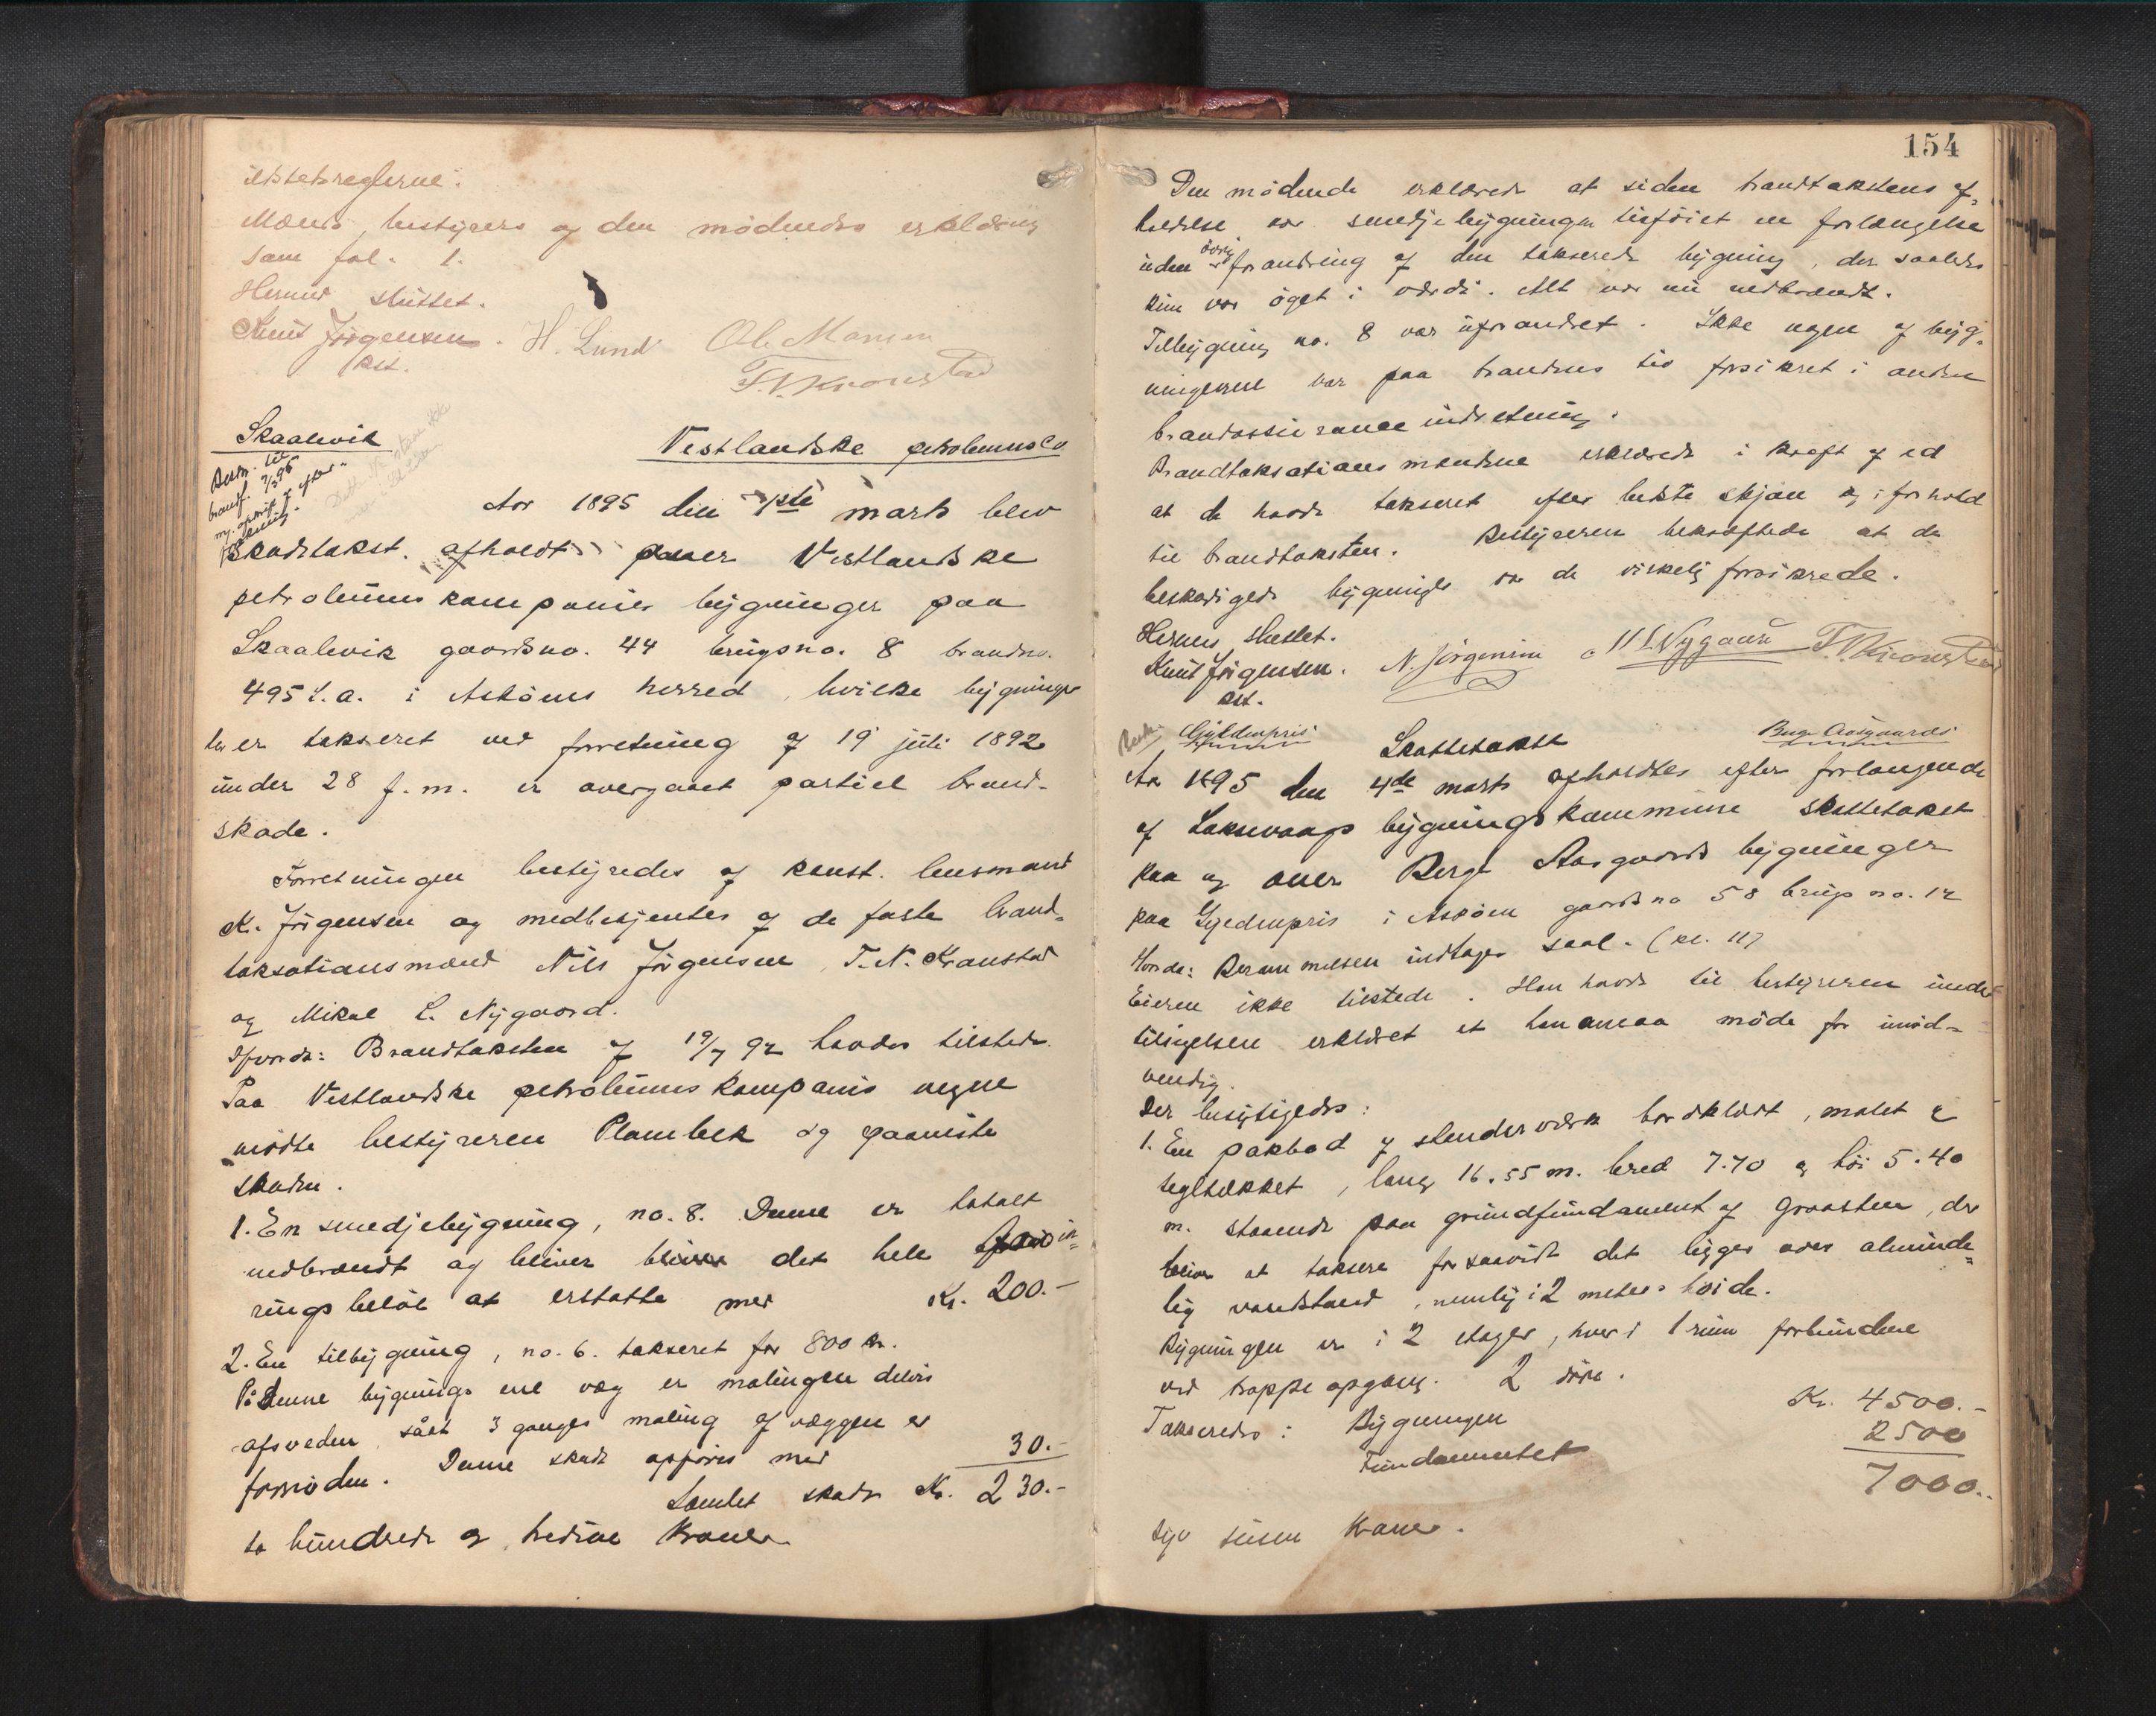 Mænds, bestyrers og den mødendes erklæring
som fol. 1.
Herved sluttet.
Knut Jörgensen. H. Lund Ole Monsen
kst. T. N. Kronstad
Skaalevik
Vestlandske petroleumsco
Besn. til
brandf. 7/3 95
Aar 1895 den 1ste marts blev
Skadetakst. afholdt over Vestlandske
petroleumskompanies bygninger paa
Skaalevik gaardsno. 44 brugsno. 8 brandno.
495 L.a. i Asköens herred, hvilke bygninger
der er takseret ved forretning af 19 juli 1892
under 28 f.m. er overgaaet partiel brand-
skade.
Forretningen bestyredes af konst. lensmand
K. Jörgensen og medbetjentes af de faste brand-
taksationsmænd Nils Jörgensen, T. N. Kronstad
og Mikal L. Nygaard.
Brandtaksten af 19/7 92 havdes tilstede.
Paa Vestlandske petroleumskompanis vegne
mödte bestyreren Plambek og paaviste
skaden.
1. En smedjebygning, no. 8. Denne er totalt
nedbrændt og bliver det hele
ringsbelöb at erstatte med Kr. 200.-
2. En tilbygning, no. 6. takseret for 800 kr.
På denne bygnings ene væg er malingen delvis
afsveden, såat 3 ganges maling af væggen er
fornöden. Denne skade opföres med 30.-
Samlet skade Kr. 230.-
to hundrede og tredive Kroner
154
Den mödende erklærede at siden brandtakstens af-
holdelse var smedjebygningen tilföiet en forlængelse
uden övrig forandring af den takserede bygning, der saaledes
kun var öget i værdi. Alt var nu nedbrændt.
Tilbygning no. 8 var uforandret. Ikke nogen af byg-
ningerne var paa brandens tid forsikret i anden
brandassuranceindretning.
Brandtaksationsmændene erklærede i kraft af ed
at de havde takseret efter bedste skjön og i forhold
til brandtaksten. Bestyreren bekræftede at de
beskadigede bygninger var de virkelig forsikrede.
Herved sluttet.
Knut Jörgensen. N. Jörgensen M L Nygaard T. N. Kronstad
kst.
Gyldenpris Skattetakst Berge Aasgaards
Aar 1895 den 4de marts afholdtes efter forlangende
af Laksevaags bygningskommune skattetakst
paa og over Berge Aasgaards bygninger
paa Gyldenpris i Askøen gaardsno 58 brugsno. 12
Havdes: Berammelsen indtages saal. (kl. 11)
Eieren ikke tilstede. Han havde til bestyreren under
tilsigelsen erklæret et han ansaa möde for unöd-
vendig.
Der besigtigedes:
1. En pakbod af stenderværk bordklædt, malet &
tegltækket, lang 16.55 m. bred 7.70 og höi 5.40
m. staaende paa grundfundament af graasten, der
bliver at taksere forsaavidt det ligger over alminde-
lig vandstand, nemlig i 2 meters höide.
Bygningen er i 2 etager, hver i 1 rum forbundne
ved trappeopgang. 2 döre.
Takseredes: Bygningen Kr. 4500.-
Fundamentet 2500
7000.-
syv tusen Kroner.